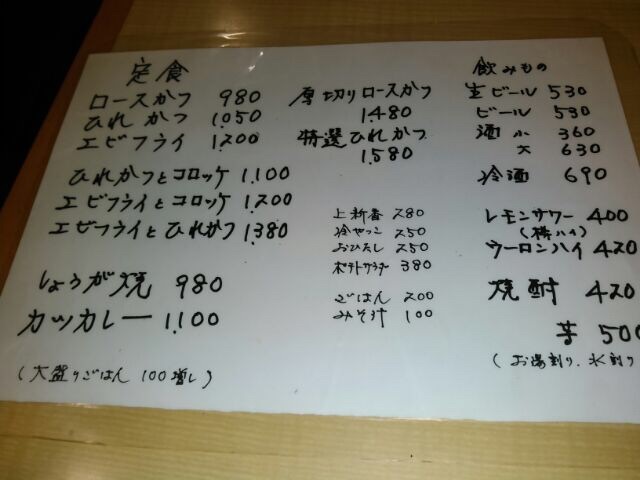 定食
ロースかつ 980
ひれかつ 1,050
エビフライ 1,200
ひれかつとコロッケ 1,100
エビフライとコロッケ 1,200
エビフライとひれかつ 1,380
しょうが焼 980
カツカレー 1,100
(大盛りごはん 100増し)
厚切りロースかつ
1,480
特選ひれかつ
1,580
上新香 280
冷やっこ 250
おひたし 250
ポテトサラダ 380
ごはん 200
みそ汁 100
飲みもの
生ビール 530
ビール 530
酒 小 360
大 630
冷酒 690
レモンサワー 400
(樽ハイ)
ウーロンハイ 420
焼酎 420
芋 500
(お湯割り、水割り